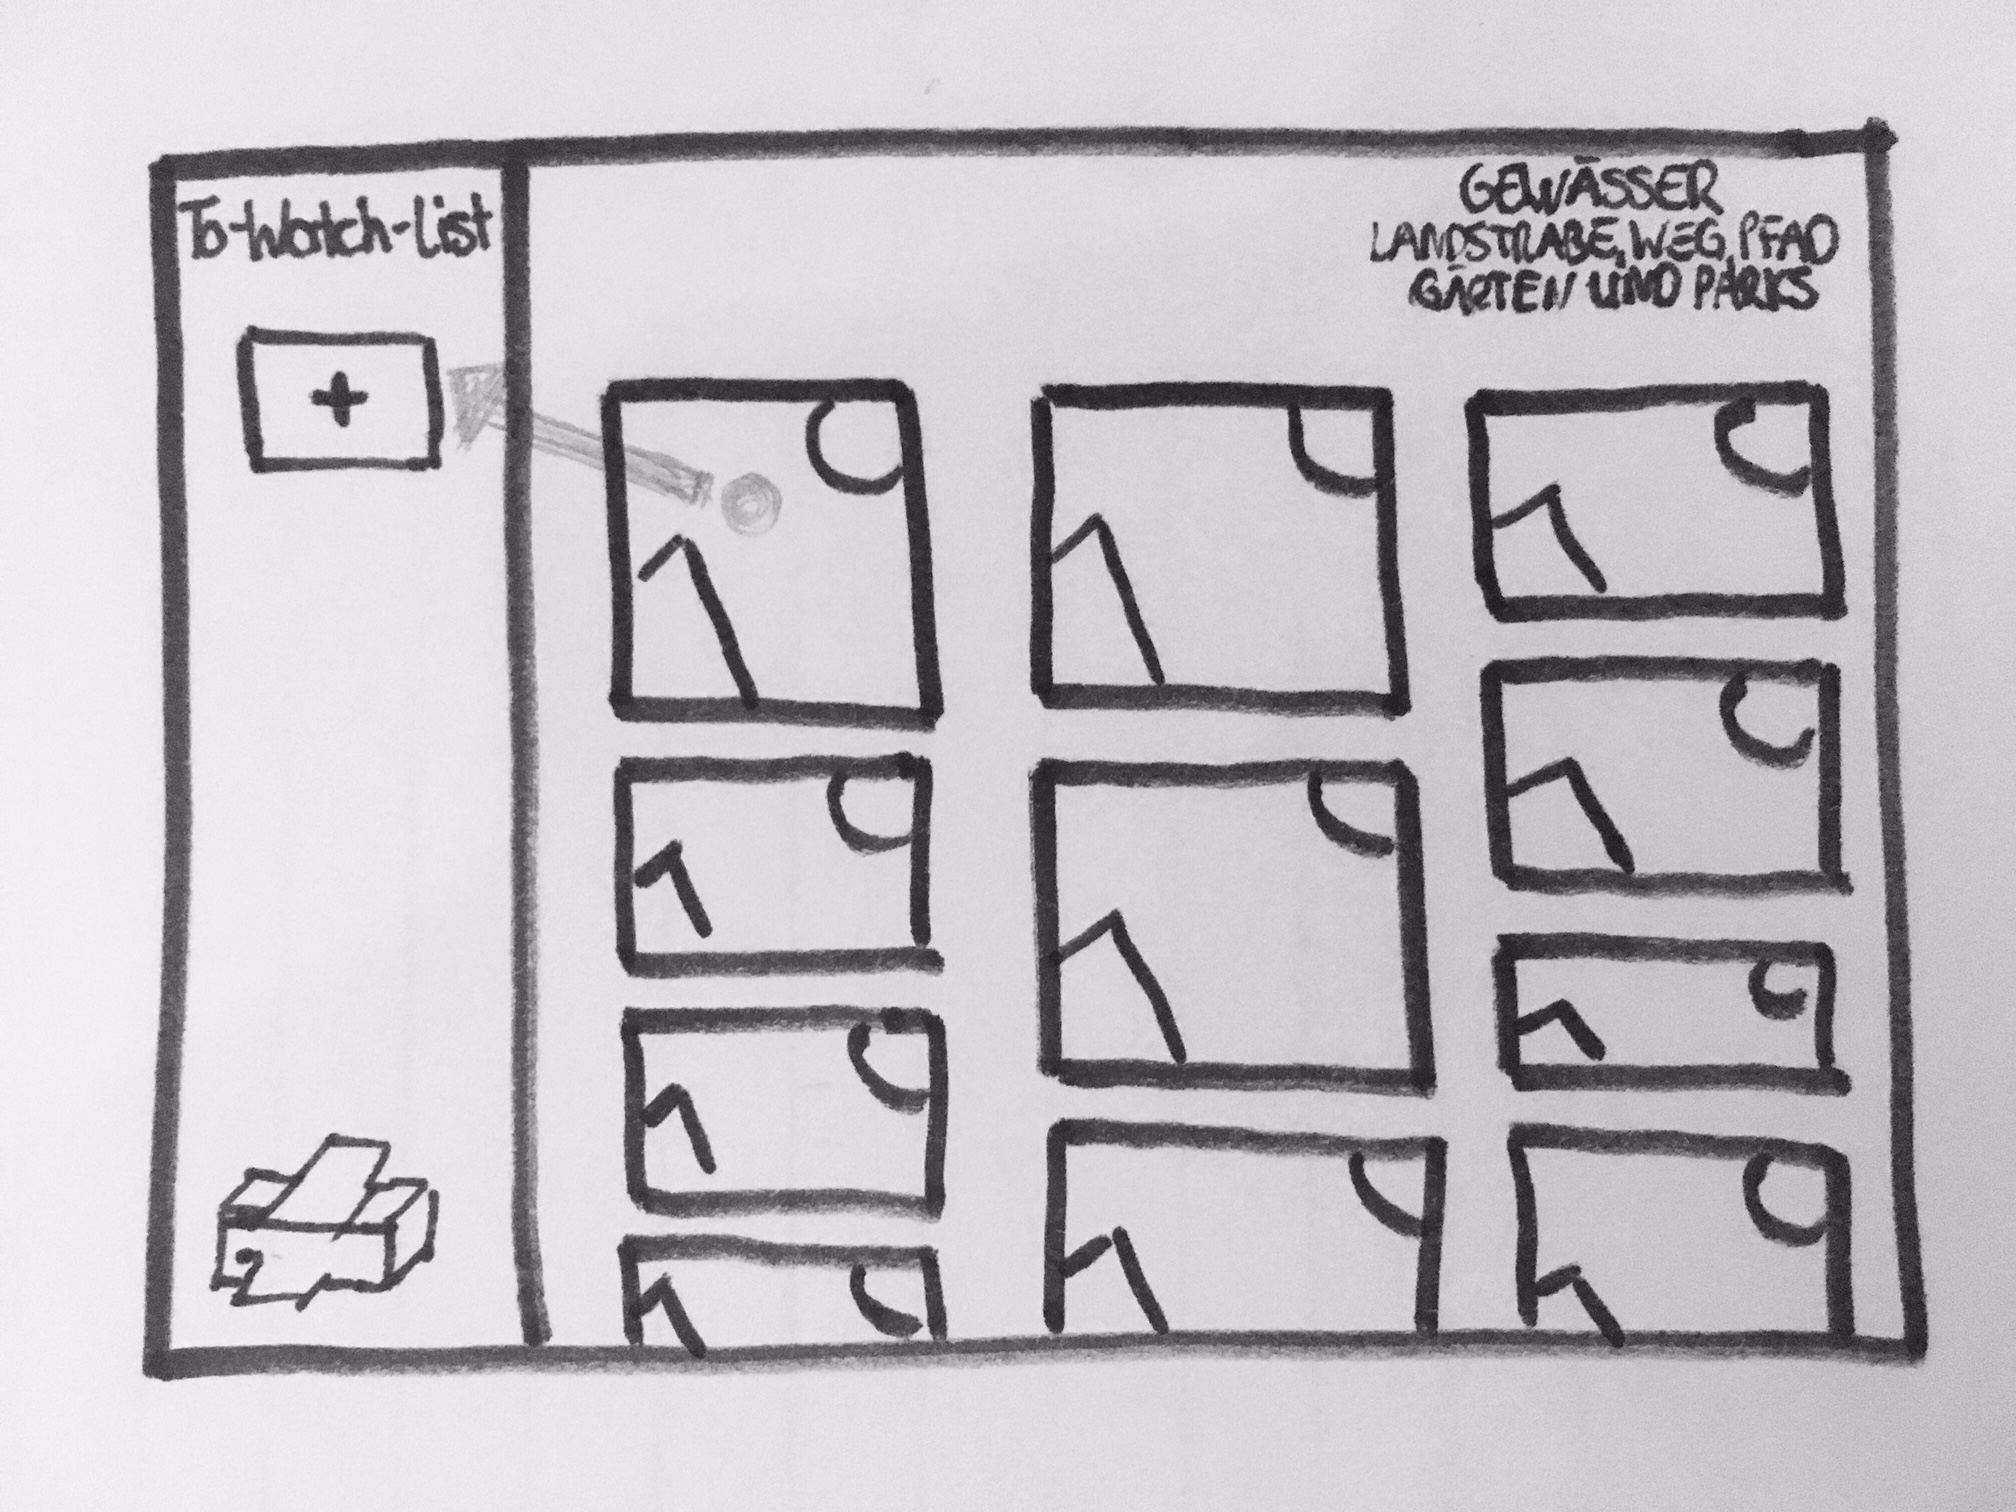 To-Watch-List
+
GEWÄSSER
LANDSTRAßE, WEG, PFAD
GÄRTEN UND PARKS